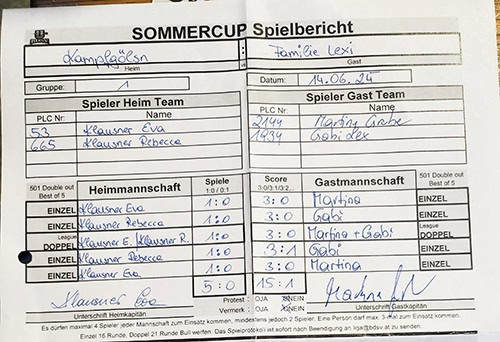 SOMMERCUP Spielbericht
Kampfgölsn : Familie Lexi
Heim Gast
Gruppe: 1 Datum: 14.06.24
Spieler Heim Team Spieler Gast Team
PLC Nr: Name PLC Nr: Name
53 Klausner Eva 2144 Martina Grebe
665 Klausner Rebecca 1934 Gabi Lex
501 Double out Best of 5 Heimmannschaft Spiele 1:0 / 0:1 Score 3:0/3:1/3:2... Gastmannschaft 501 Double out Best of 5
EINZEL Klausner Eva 1:0 3:0 Martina EINZEL
EINZEL Klausner Rebecca 1:0 3:0 Gabi EINZEL
League DOPPEL Klausner E. / Klausner R. 1:0 3:0 Martina + Gabi League DOPPEL
EINZEL Klausner Rebecca 1:0 3:1 Gabi EINZEL
EINZEL Klausner Eva 1:0 3:0 Martina EINZEL
5:0 15:1
Klausner Eva Protest : OJA NEIN
Unterschrift Heimkapitän Vermerk : OJA NEIN Unterschrift Gastkapitän
Es dürfen maximal 4 Spieler jeder Mannschaft zum Einsatz kommen, mindestens jedoch 2 Spieler. Eine Person darf max. 3 mal zum Einsatz kommen.
Einzel 16 Runde, Doppel 21 Runde Bull werfen. Das Spielprotokoll ist sofort nach Beendigung an liga@bdsv.at zu senden.